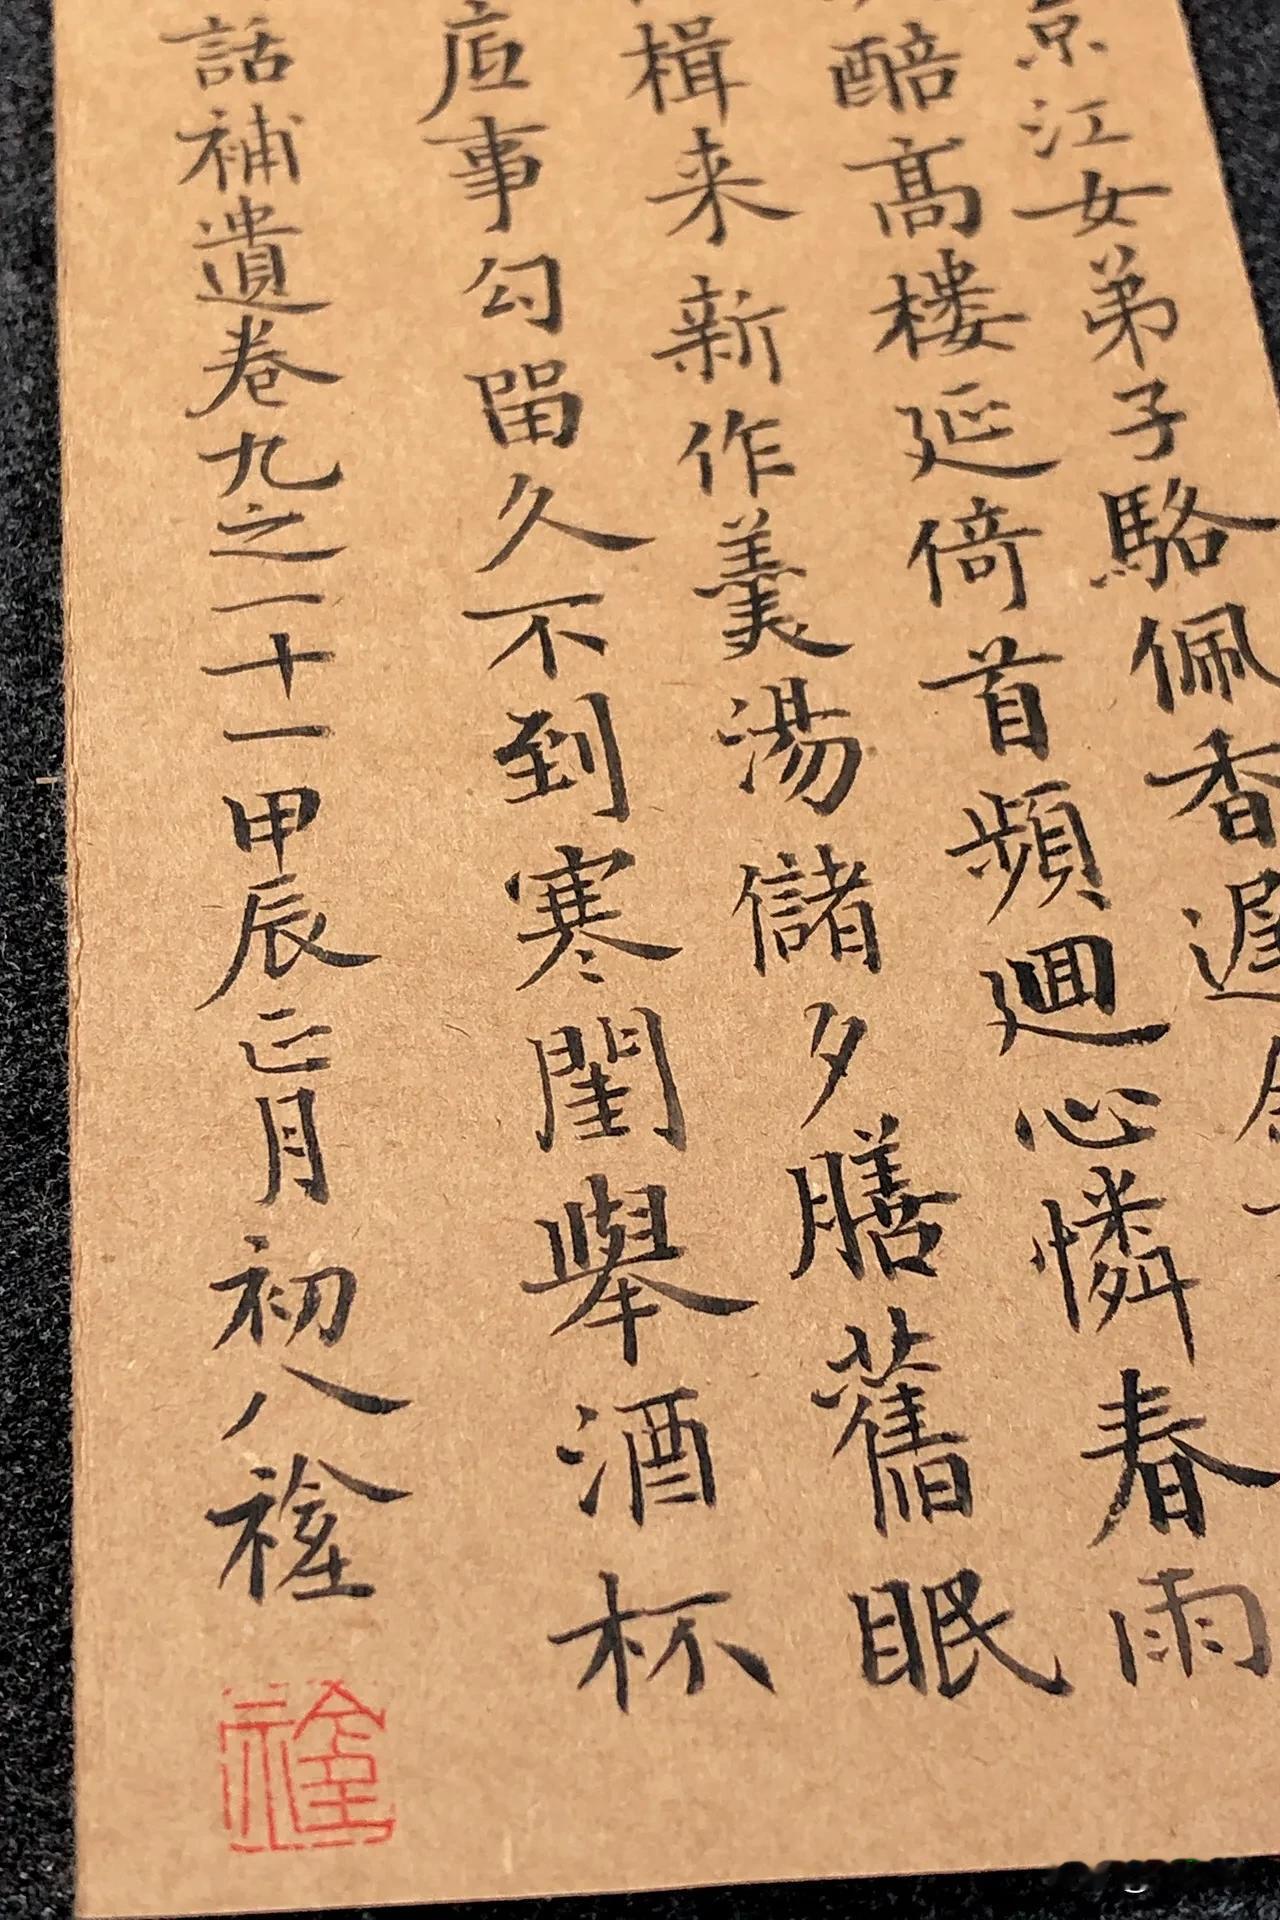 京江女弟子駱佩香遲
醅高樓延倚首頻迴心憐春雨
楫来新作羹湯儲夕膳舊眠
事勾留久不到寒閨舉酒杯
話補遺卷九之一十一甲辰正月初八